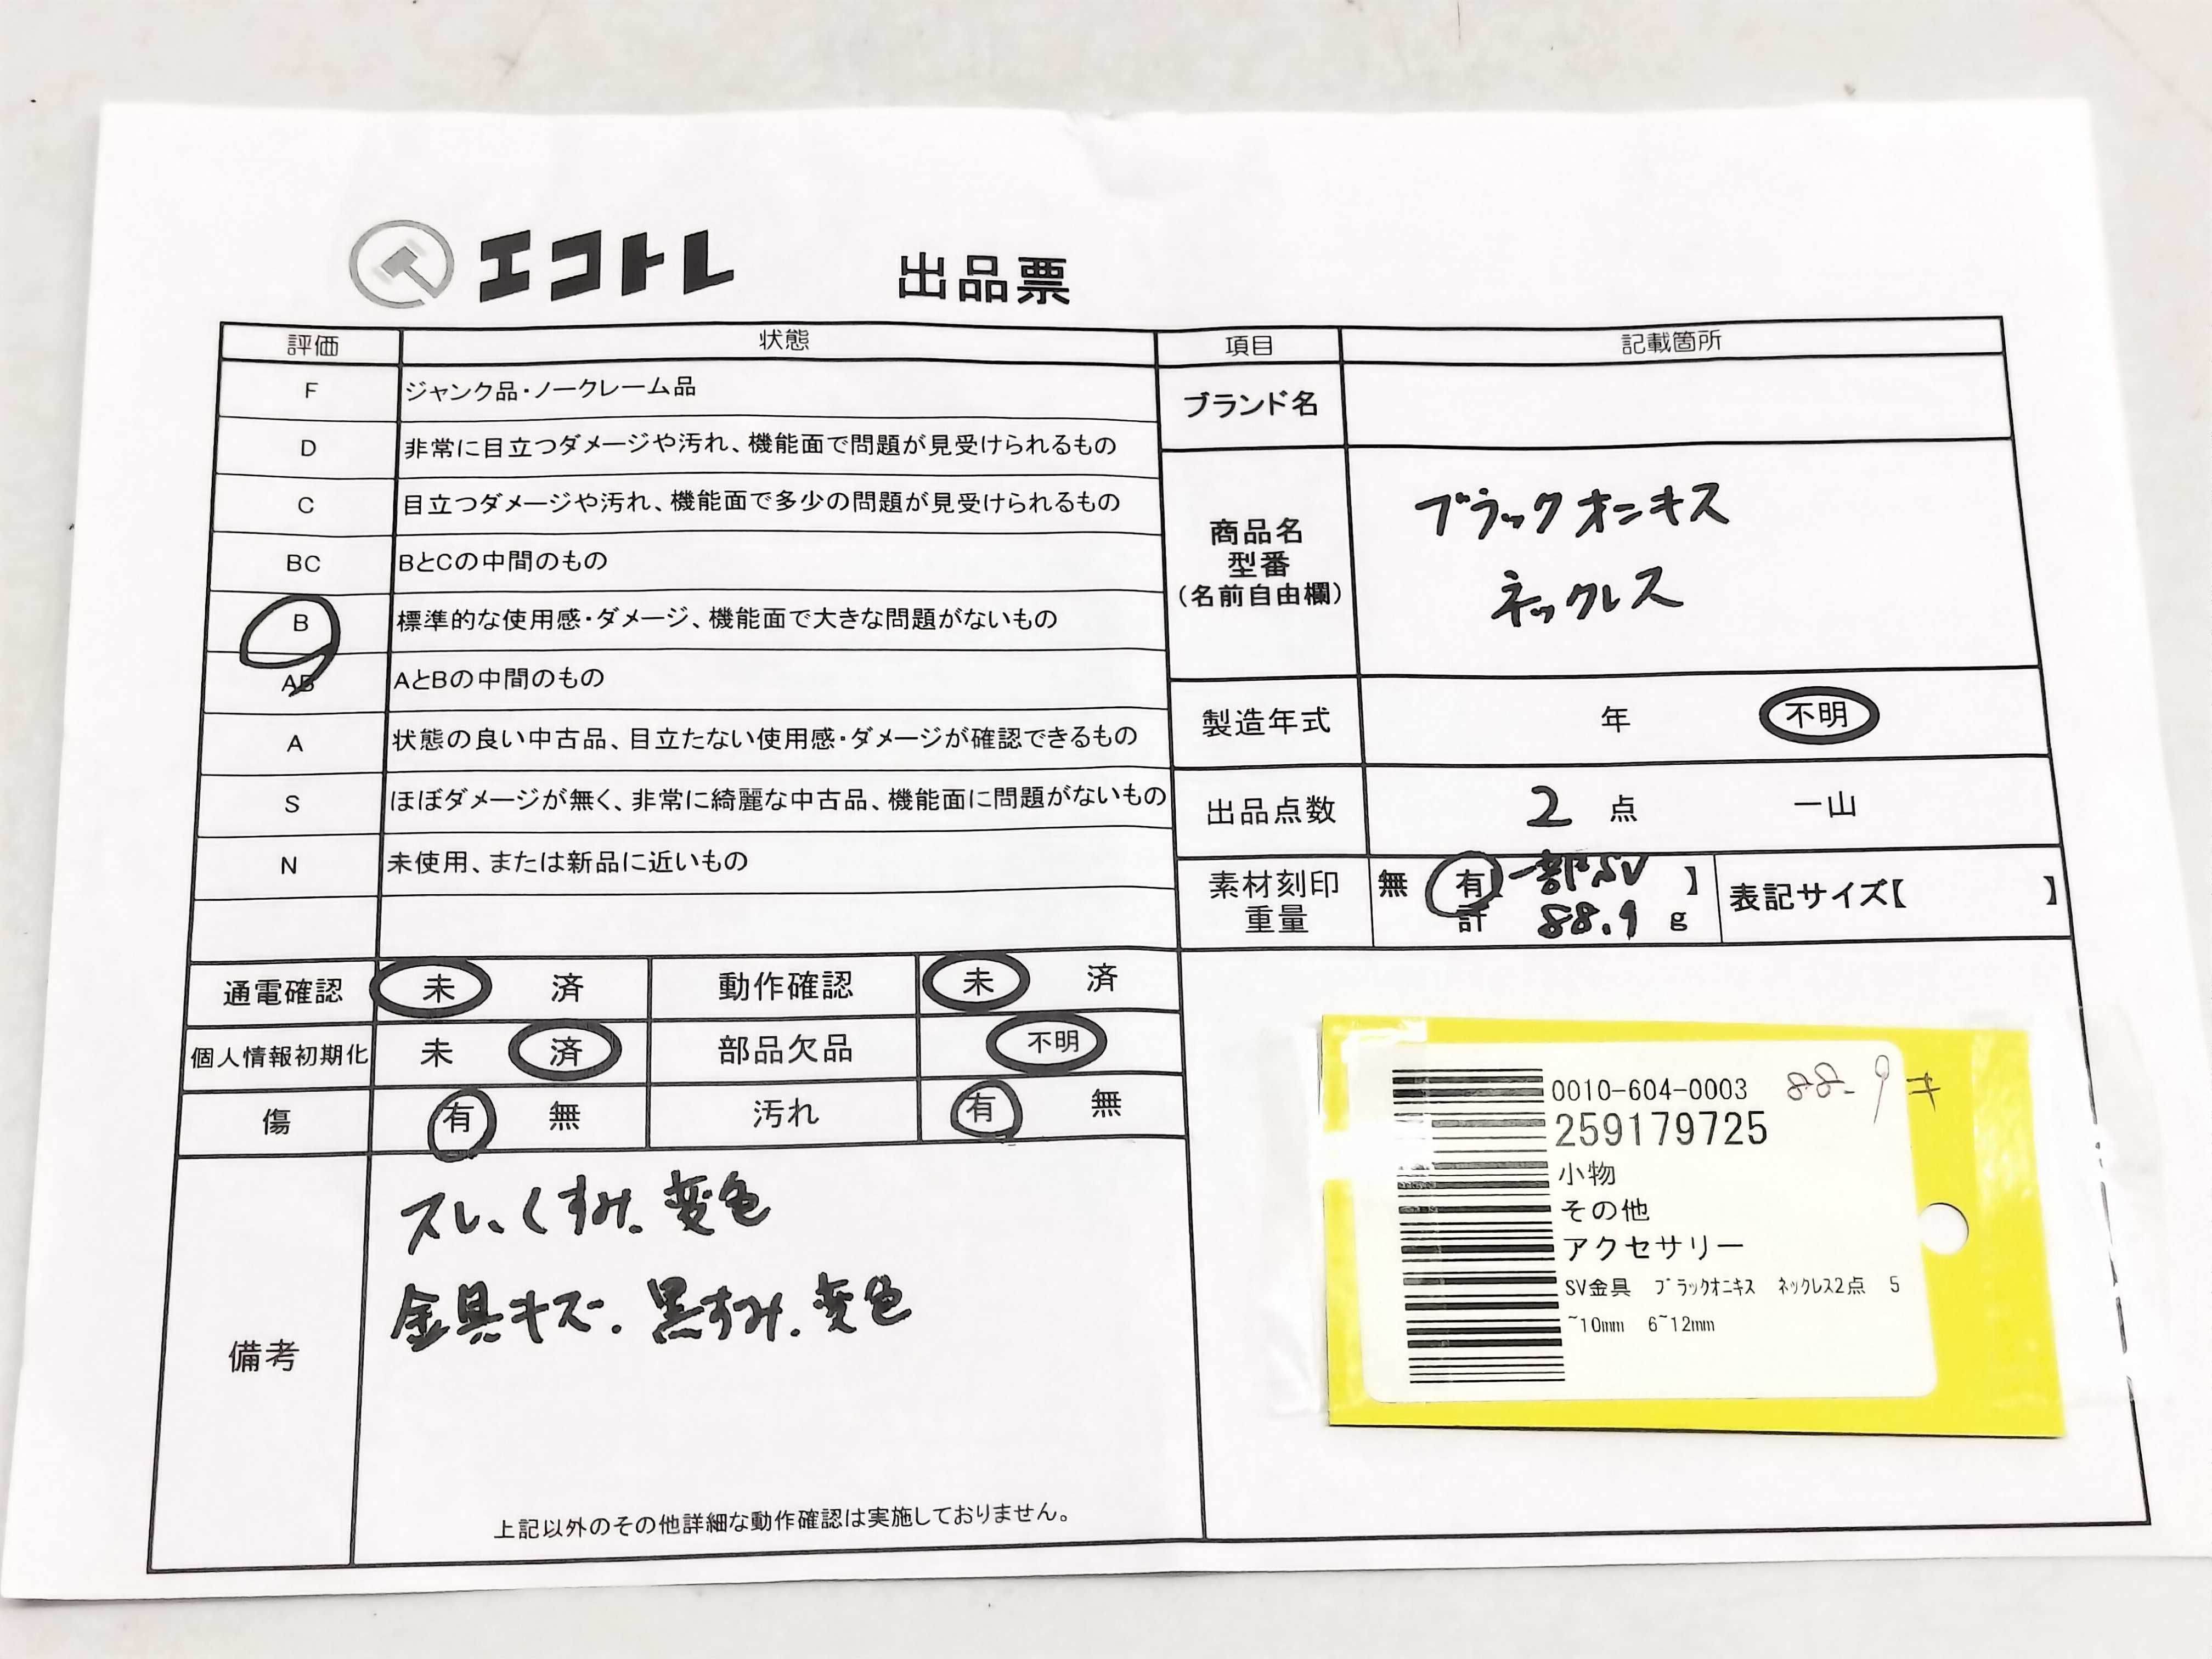 エコトレ 出品票
評価 状態
F ジャンク品・ノークレーム品
D 非常に目立つダメージや汚れ、機能面で問題が見受けられるもの
C 目立つダメージや汚れ、機能面で多少の問題が見受けられるもの
BC BとCの中間のもの
B 標準的な使用感・ダメージ、機能面で大きな問題がないもの
AB AとBの中間のもの
A 状態の良い中古品、目立たない使用感・ダメージが確認できるもの
S ほぼダメージが無く、非常に綺麗な中古品、機能面に問題がないもの
N 未使用、または新品に近いもの
項目 記載箇所
ブランド名
商品名
型番
(名前自由欄)
ブラックオニキス
ネックレス
製造年式 年 不明
出品点数 2 点 一山
素材刻印 無 有 一部SV 】
重量 計 88.9 g
表記サイズ【 】
通電確認 未 済 動作確認 未 済
個人情報初期化 未 済 部品欠品 不明
傷 有 無 汚れ 有 無
備考
スレ、くすみ、変色
金具キズ、黒ずみ、変色
上記以外のその他詳細な動作確認は実施しておりません。
0010-604-0003 88.9 キ
259179725
小物
その他
アクセサリー
SV金具 ﾌﾞﾗｯｸｵﾆｷｽ ﾈｯｸﾚｽ2点 5
~10mm 6~12mm